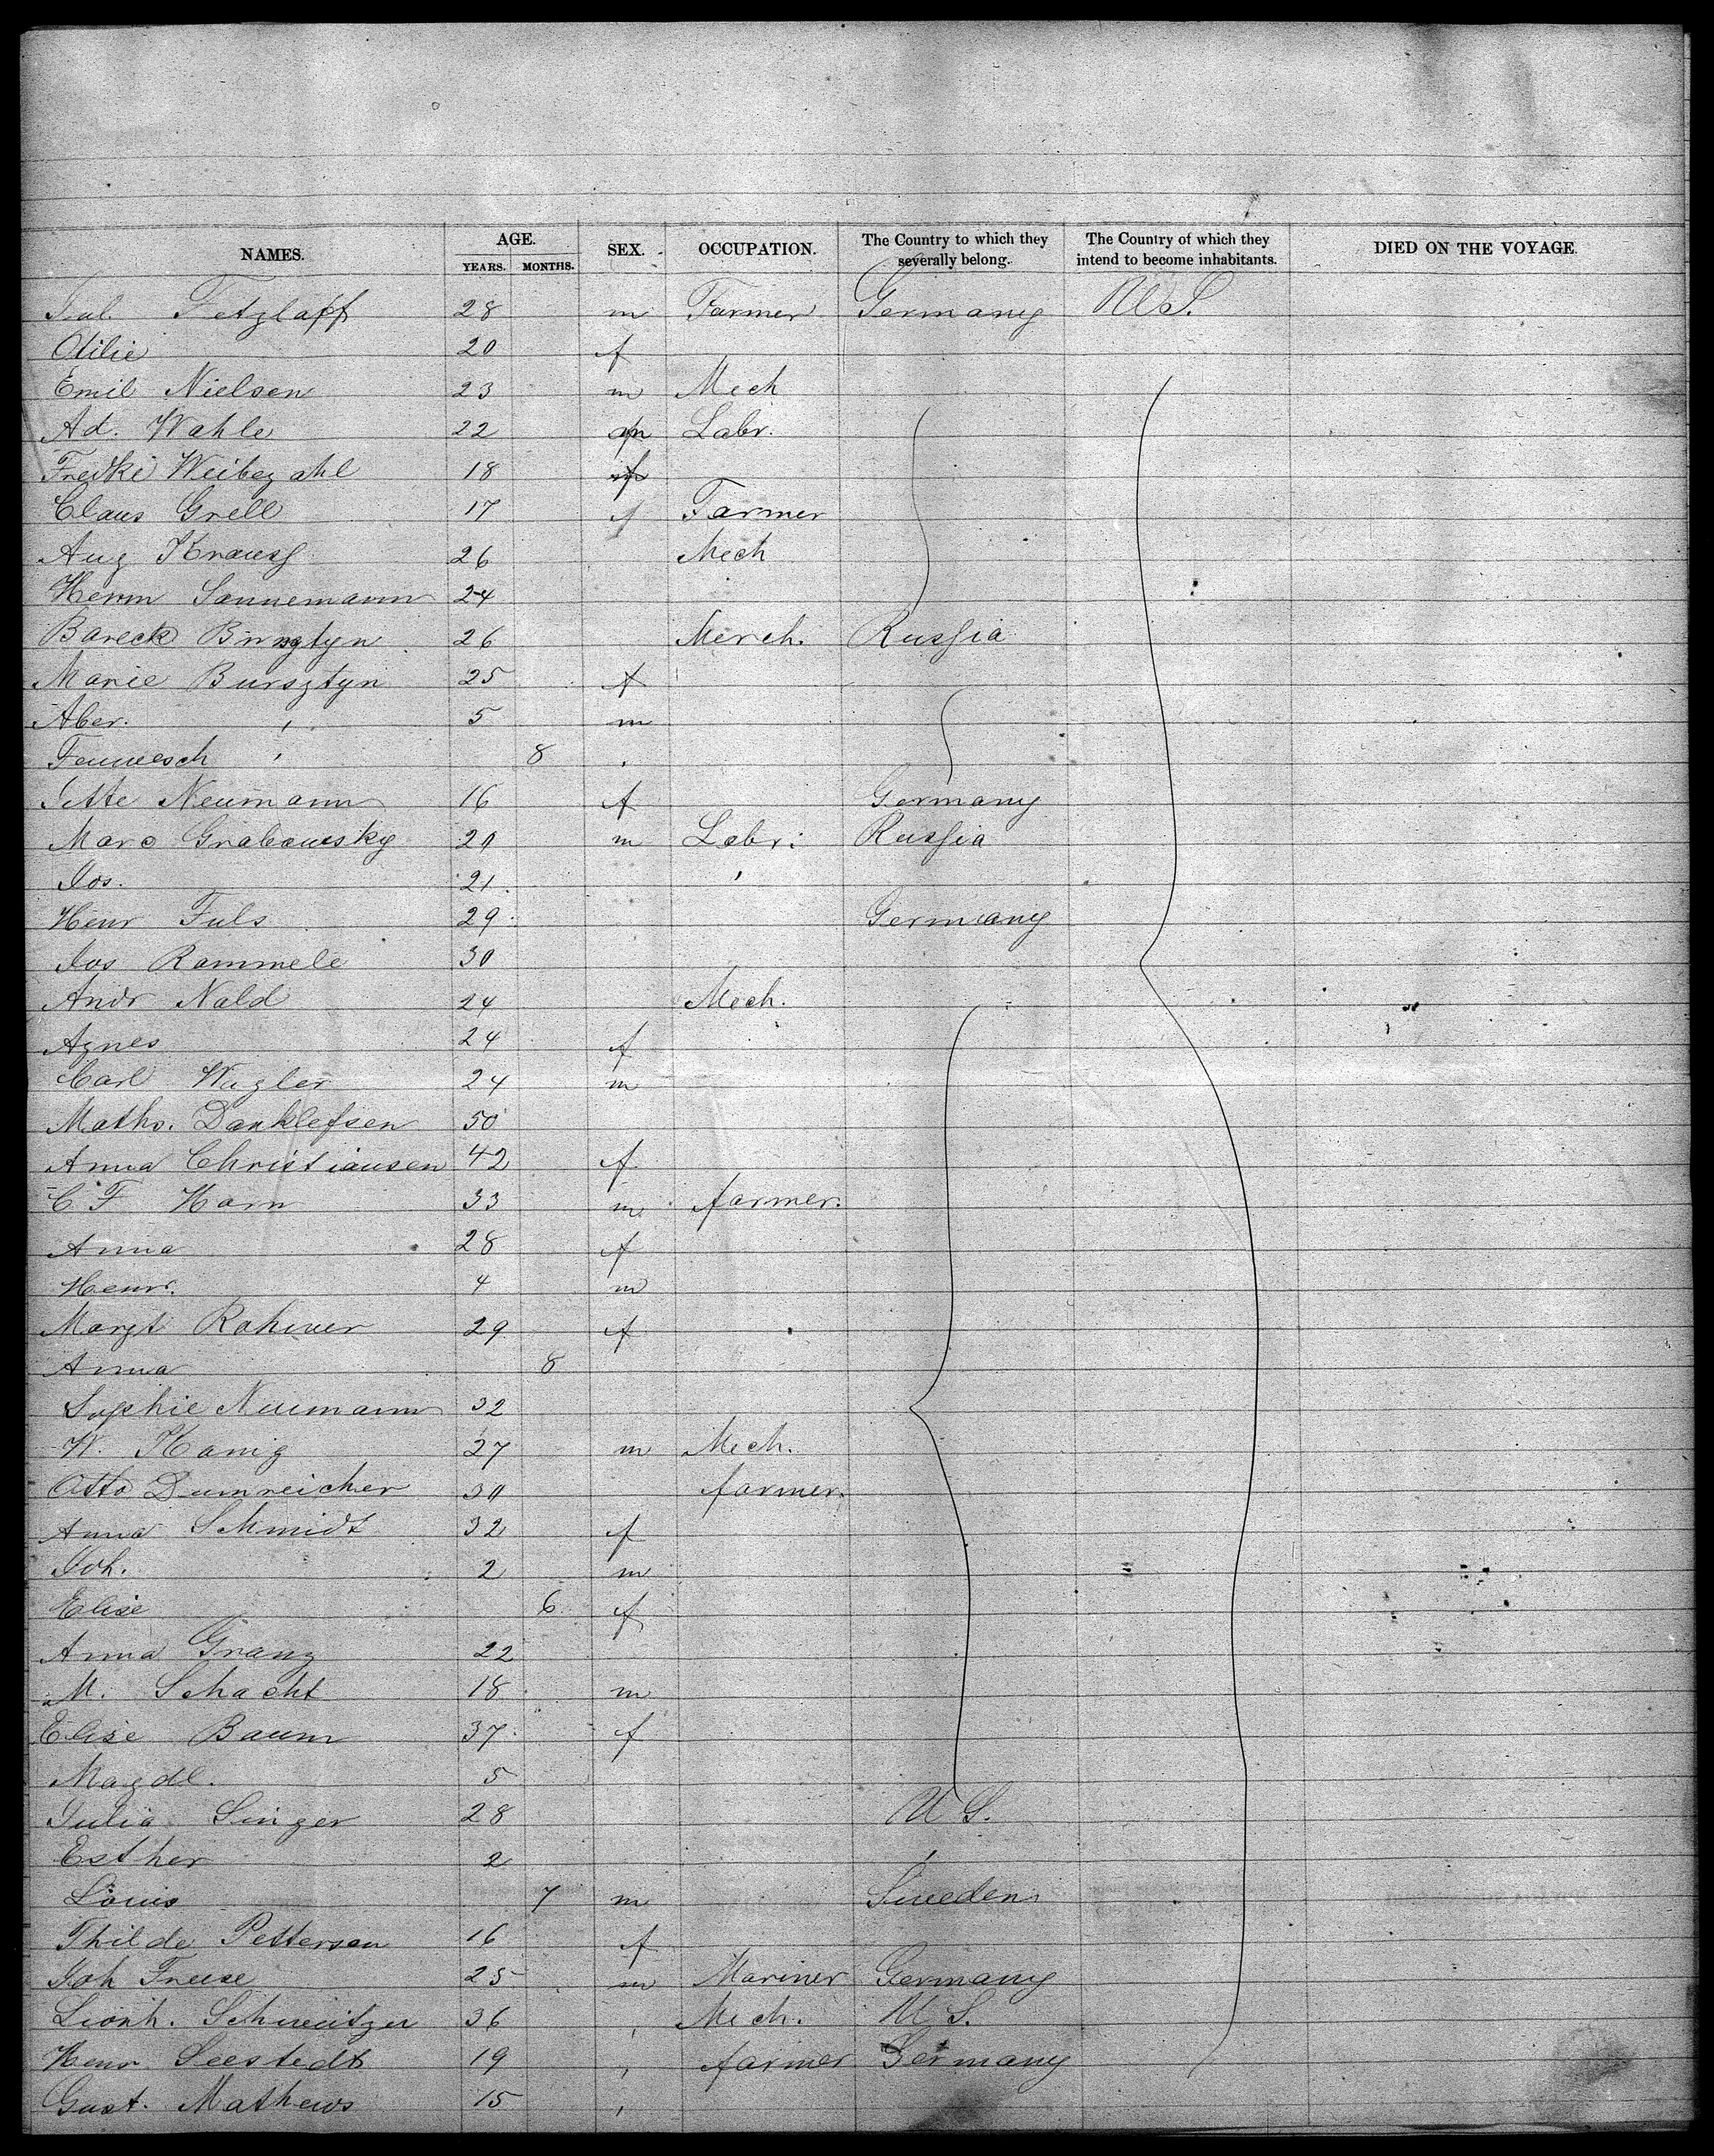 NAMES. AGE. SEX. OCCUPATION. The Country to which they severally belong. The Country of which they intend to become inhabitants. DIED ON THE VOYAGE.
YEARS. MONTHS.
Jul. Tetzlaff 28 m Farmer Germany U.S.
Otilie 20 f
Emil Nielsen 23 m Mech
Ad. Wahle 22 Labr.
Fredke Weibezahl 18 f
Claus Grell 17 Farmer
Aug Krauss 26 Mech
Herm Sannemann 24
Bareck Bursztyn 26 Merch. Russia
Marie Bursztyn 25 f
Aber. " 5 m
" 8
Jette Neumann 16 f Germany
Marc Grabowsky 20 m Labr: Russia
Jos. 21
Henr Fuls 29 Germany
Jos Rammele 30
Andr Nald 24 Mech.
Agnes 24 f
Carl Wagler 24 m
Maths. Danklefsen 50
Anna Christiansen 42 f
C F Horn 33 m farmer.
Anna 28 f
Henr. 4 m
Margt Rohwer 29 f
Anna 8
Sophie Neumann 32
W. Konig 27 m Mech.
Otto Dumreicher 30 farmer.
Anna Schmidt 32 f
Joh. 2 m
Elise 6 f
Anna Granz 22
M. Schacht 18 m
Elise Baum 37 f
Magdl. 5
Julia Singer 28 U S.
Esther 2 "
Louis 7 m Sweden
Thilde Pettersen 16 f
Joh Freese 25 m Mariner Germany
Leonh. Schweitzer 36 " Mech. U S.
Henr Seestedt 19 " farmer Germany
Gust. Mathews 15 "